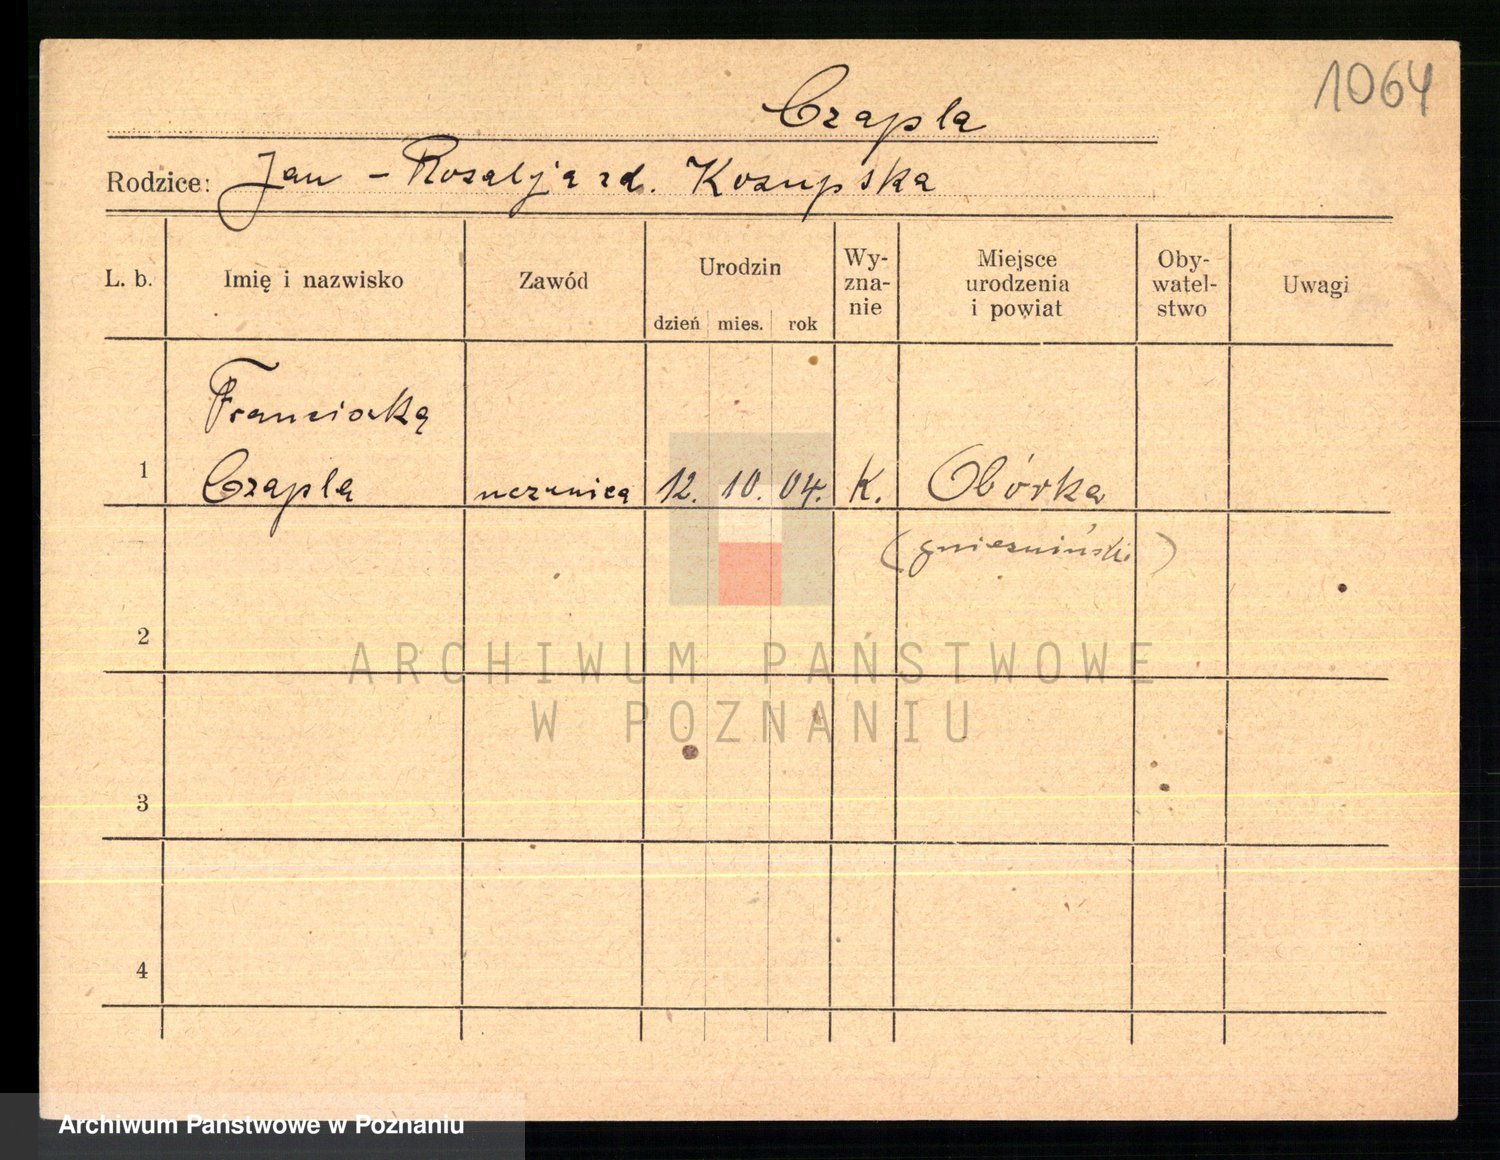 1064
Czapla
Rodzice: Jan - Rozalja zd. Kozupska
L. b. Imię i nazwisko Zawód Urodzin Wy-zna-nie Miejsce urodzenia i powiat Oby-watel-stwo Uwagi
dzień mies. rok
Franciszka
1 Czapla uczenica 12. 10. 04. K. Obórka
(gnieźnińsk.)
2
ARCHIWUM PAŃSTWOWE
W POZNANIU
3
4
Archiwum Państwowe w Poznaniu